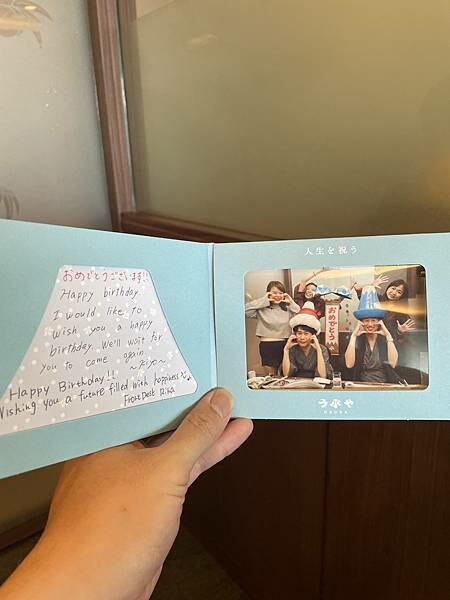 おめでとうございます!!
Happy birthday.
I would like to
wish you a happy
birthday. We'll wait for
you to come again
~Kiyo~
Happy Birthday!!
Wishing you a future filled with happiness
Front Desk Rika
人生を祝う
おめでとう